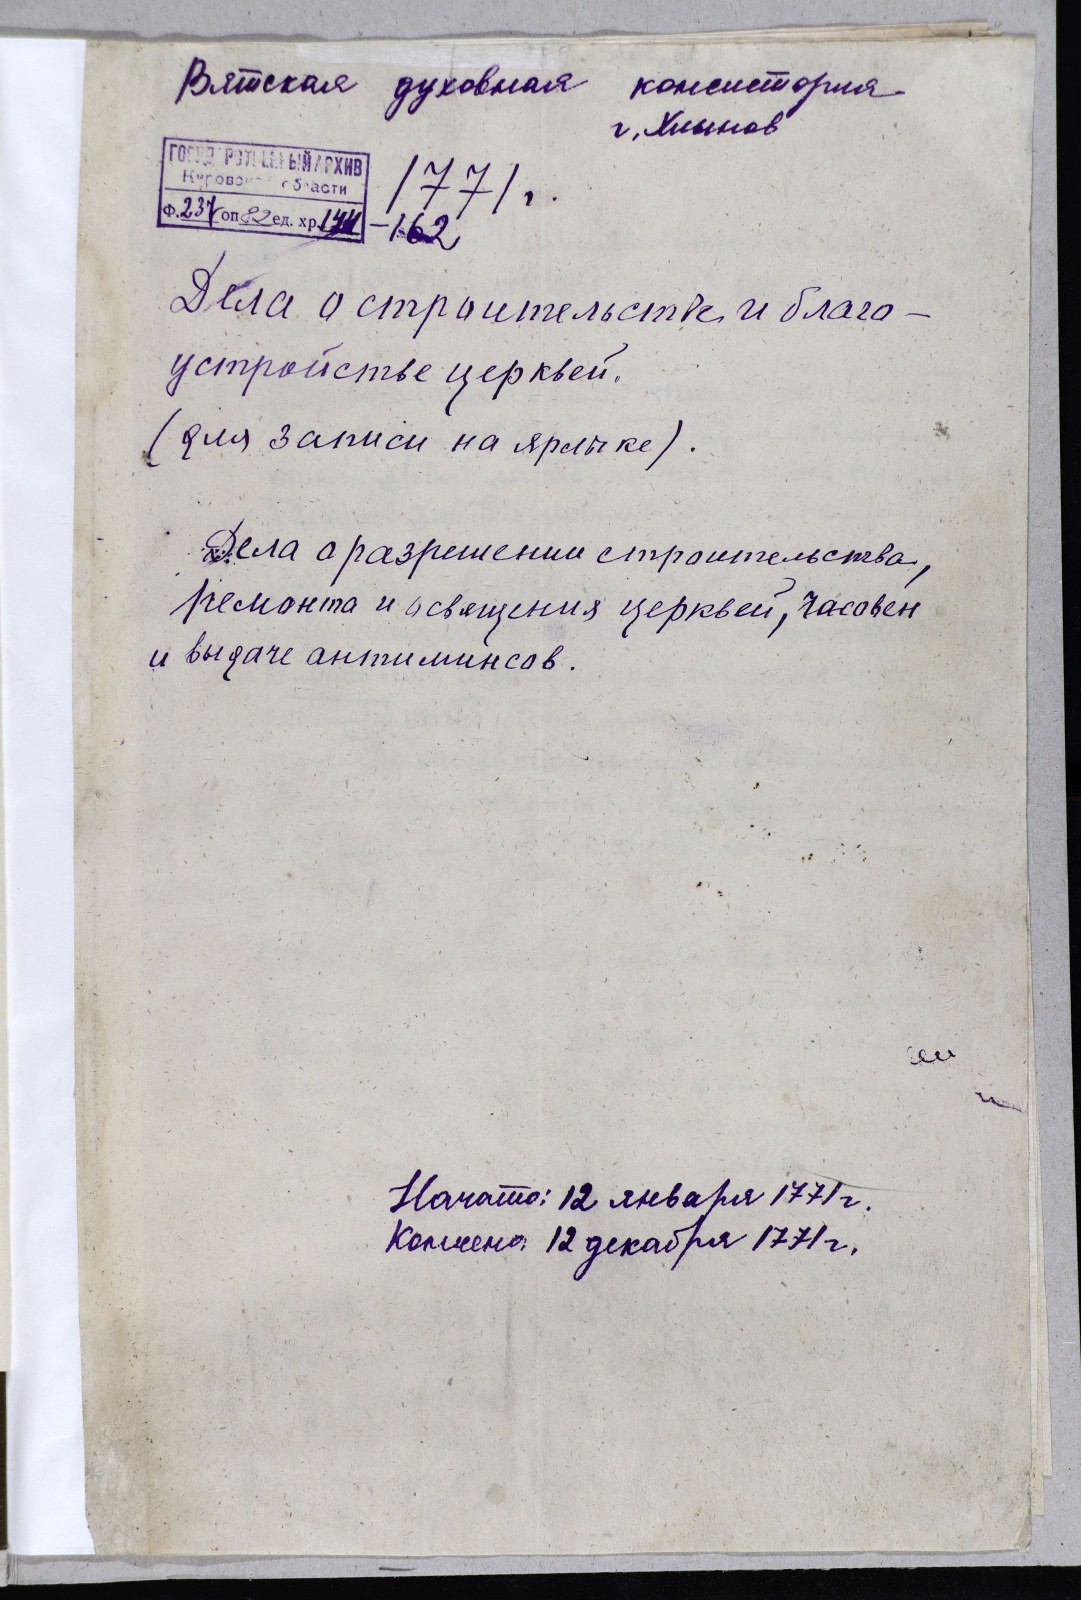 Вятская духовная консистория
г. Хлынов
ГОСУДАРСТВЕННЫЙ АРХИВ
Кировской области
Ф. 237 оп 82 ед. хр.
1771 г.
-162
Дела о строительстве и благо-
устройстве церквей.
(для записи на ярлыке).
Дела о разрешении строительства,
ремонта и освящения церквей, часовен
и выдаче антиминсов.
Начато: 12 января 1771 г.
Кончено: 12 декабря 1771 г.